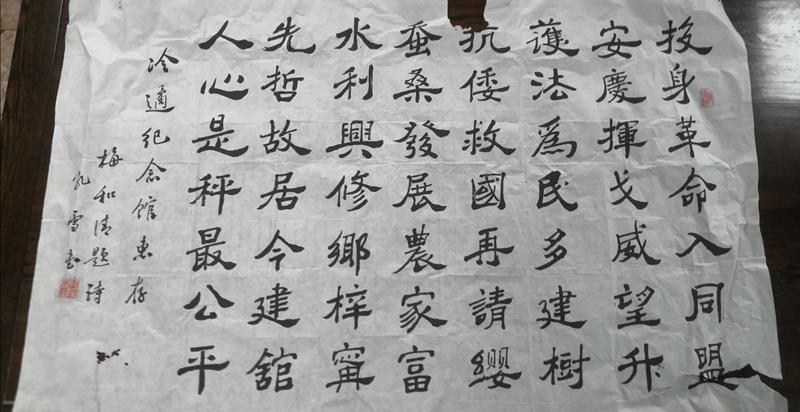 投身革命入同盟
安慶揮戈威望升
護法爲民多建樹
抗倭救國再請纓
蚕桑發展農家富
水利興修鄉梓甯
先哲故居今建舘
人心是秤最公平
冷遹纪念館惠存
梅和清题詩
孔雪书